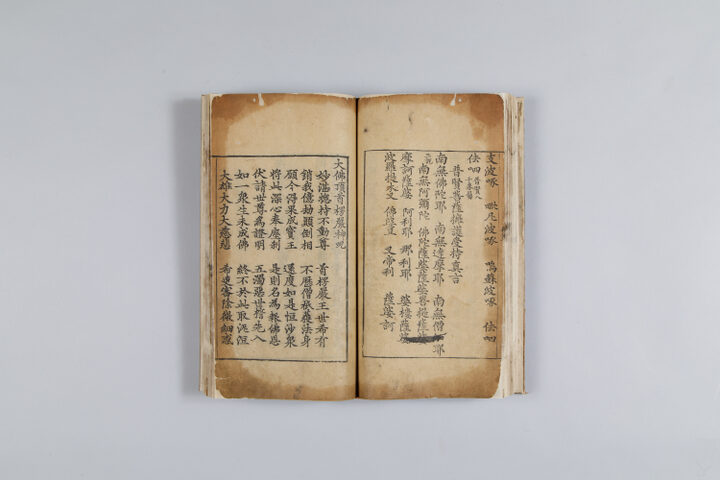 支波啄 毗尼波啄 嗚蘇波啄 佉呬
佉呬
普賢菩薩擁護受持真言
南無佛陀耶 南無達摩耶 南無僧 耶
南無阿彌陀
摩訶薩婆 阿利耶 那利耶 婆櫨薩婆
波羅提 又帝利 薩婆訶
大佛頂首楞嚴神呪
妙湛摠持不動尊 首楞嚴王世希有
銷我億劫顛倒相 不歷僧祇獲法身
願今得果成寶王 還度如是恒沙衆
將此深心奉塵刹 是則名為報佛恩
伏請世尊為證明 五濁惡世誓先入
如一衆生未成佛 終不於此取泥洹
大雄大力大慈悲 希更審除微細惑